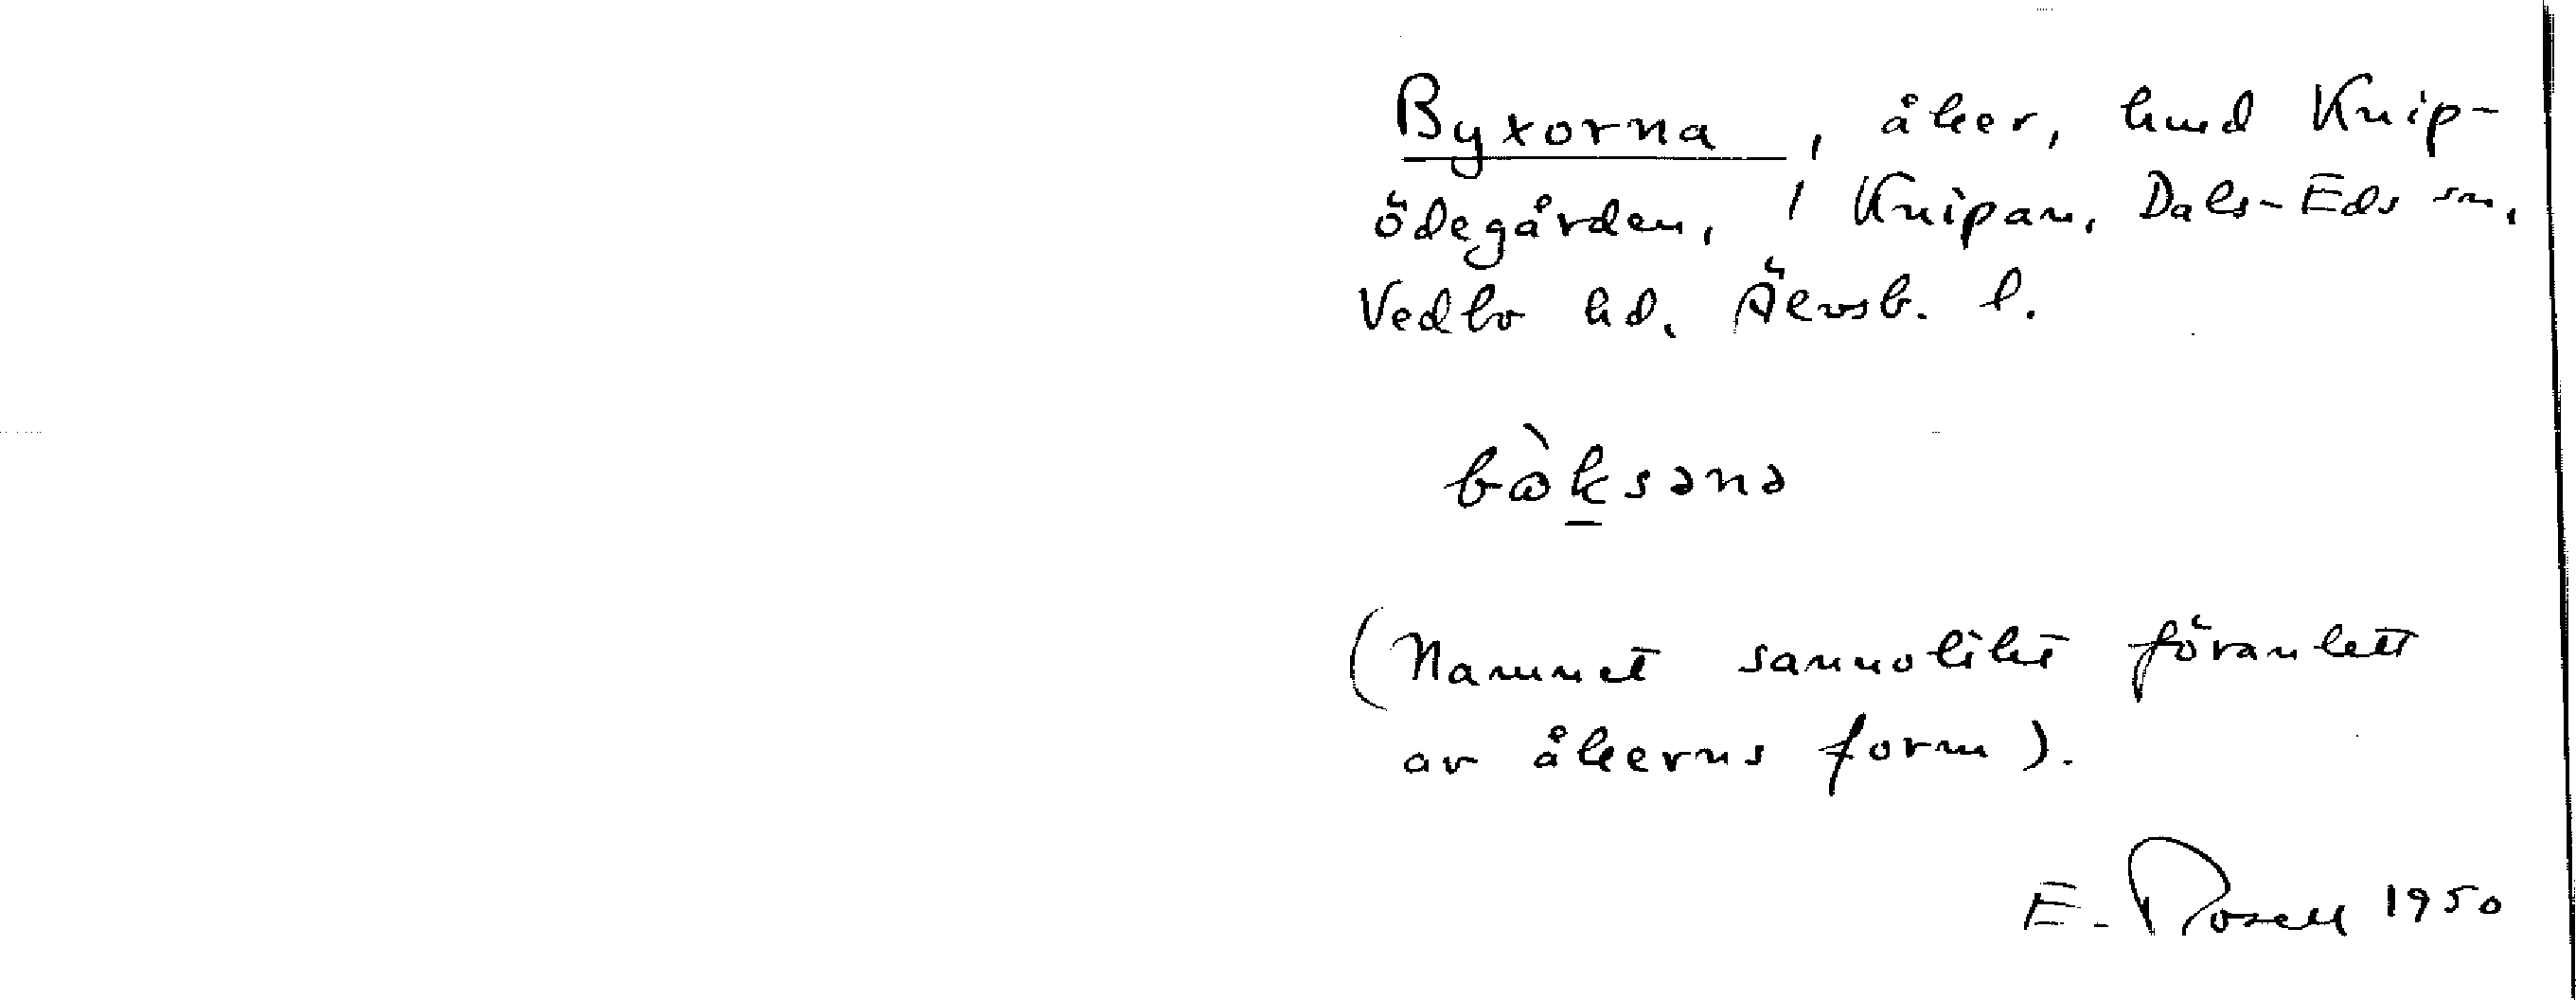 Byxorna, åker, hmd Knip-
ödegården, / Knipan, Dals-Eds sn,
Vedbo hd. Älvsb. l.
bѐksənə
(Namnet sannolikt föranlett
av åkerns form).
E. Rosell 1950